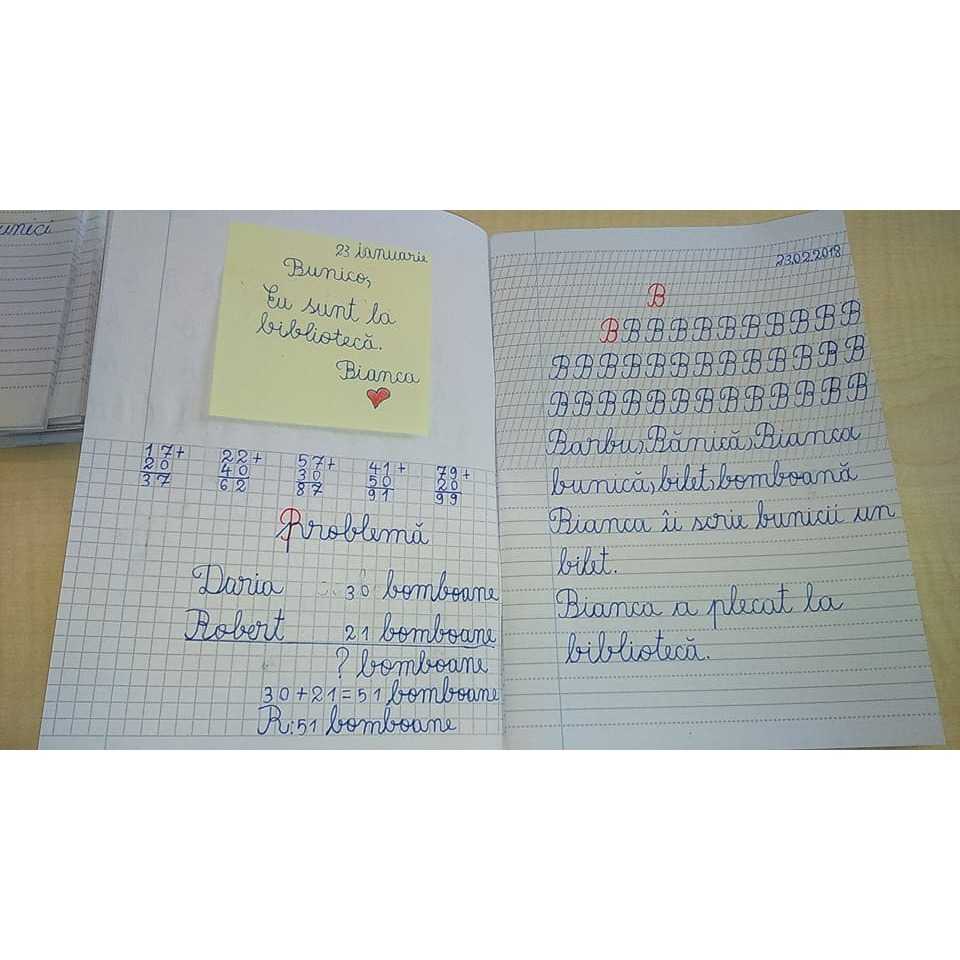 unici
23 ianuarie
Bunico,
Eu sunt la
bibliotecă.
Bianca
17+ 22+ 57+ 41+ 79+
20 40 30 50 20
37 62 87 91 99
Problemă
Daria 30 bomboane
Robert 21 bomboane
? bomboane
30+21=51 bomboane
R:51 bomboane
23.02.2018
B
B B B B B B B B B B B
B B B B B B B B B B B B B B
B B B B B B B B B B B B B B
Barbu, Bănică, Bianca
bunică, bilet, bomboană
Bianca îi scrie bunicii un
bilet.
Bianca a plecat la
bibliotecă.